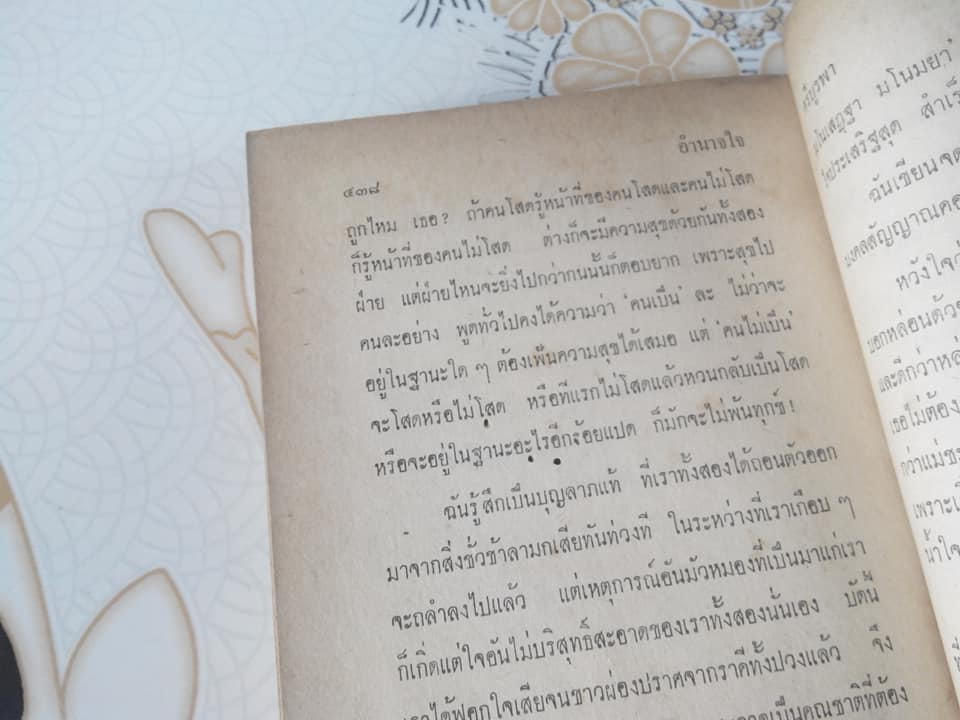 อำนาจใจ
๔๓๘
ถูกไหม เธอ? ถ้าคนโสดรู้หน้าที่ของคนโสดและคนไม่โสด
ก็รู้หน้าที่ของคนไม่โสด ต่างก็จะมีความสุขด้วยกันทั้งสอง
ฝ่าย แต่ฝ่ายไหนจะยิ่งไปกว่ากนนั้นก็ตอบยาก เพราะสุขไป
คนละอย่าง พูดทั่วไปคงได้ความว่า 'คนเป็น' ละ ไม่ว่าจะ
อยู่ในฐานะใด ๆ ต้องเพ้นความสุขได้เสมอ แต่ 'คนไม่เป็น'
จะโสดหรือไม่โสด หรือทีแรกไม่โสดแล้วหวนกลับเป็นโสด
หรือจะอยู่ในฐานะอะไรอีกร้อยแปด ก็มักจะไม่พ้นทุกข์!
ฉันรู้สึกเป็นบุญลาภแท้ ที่เราทั้งสองได้ถอนตัวออก
มาจากสิ่งชั่วช้าลามกเสียทันท่วงที ในระหว่างที่เราเกือบ ๆ
จะถลำลงไปแล้ว แต่เหตุการณ์อันมัวหมองที่เป็นมาแก่เรา
ก็เกิดแต่ใจอันไม่บริสุทธิ์สะอาดของเราทั้งสองนั่นเอง บัดนี้
เราได้ฟอกใจเสียจนขาวผ่องปราศจากราคีทั้งปวงแล้ว จึง
เป็นคุณชาติที่ต้อง
ศรีบูรพา
มโนเสฏฐา มโนมยา
ใจประเสริฐสุด สำเร็
ฉันเขียนจด
มงคลสัญญาณคอ
หวังใจว่
บอกหล่อนด้วย
และดีกว่าหล่
เธอไม่ต้อง
กว่าแม่ชะ
เพราะเ
น้ำใจ